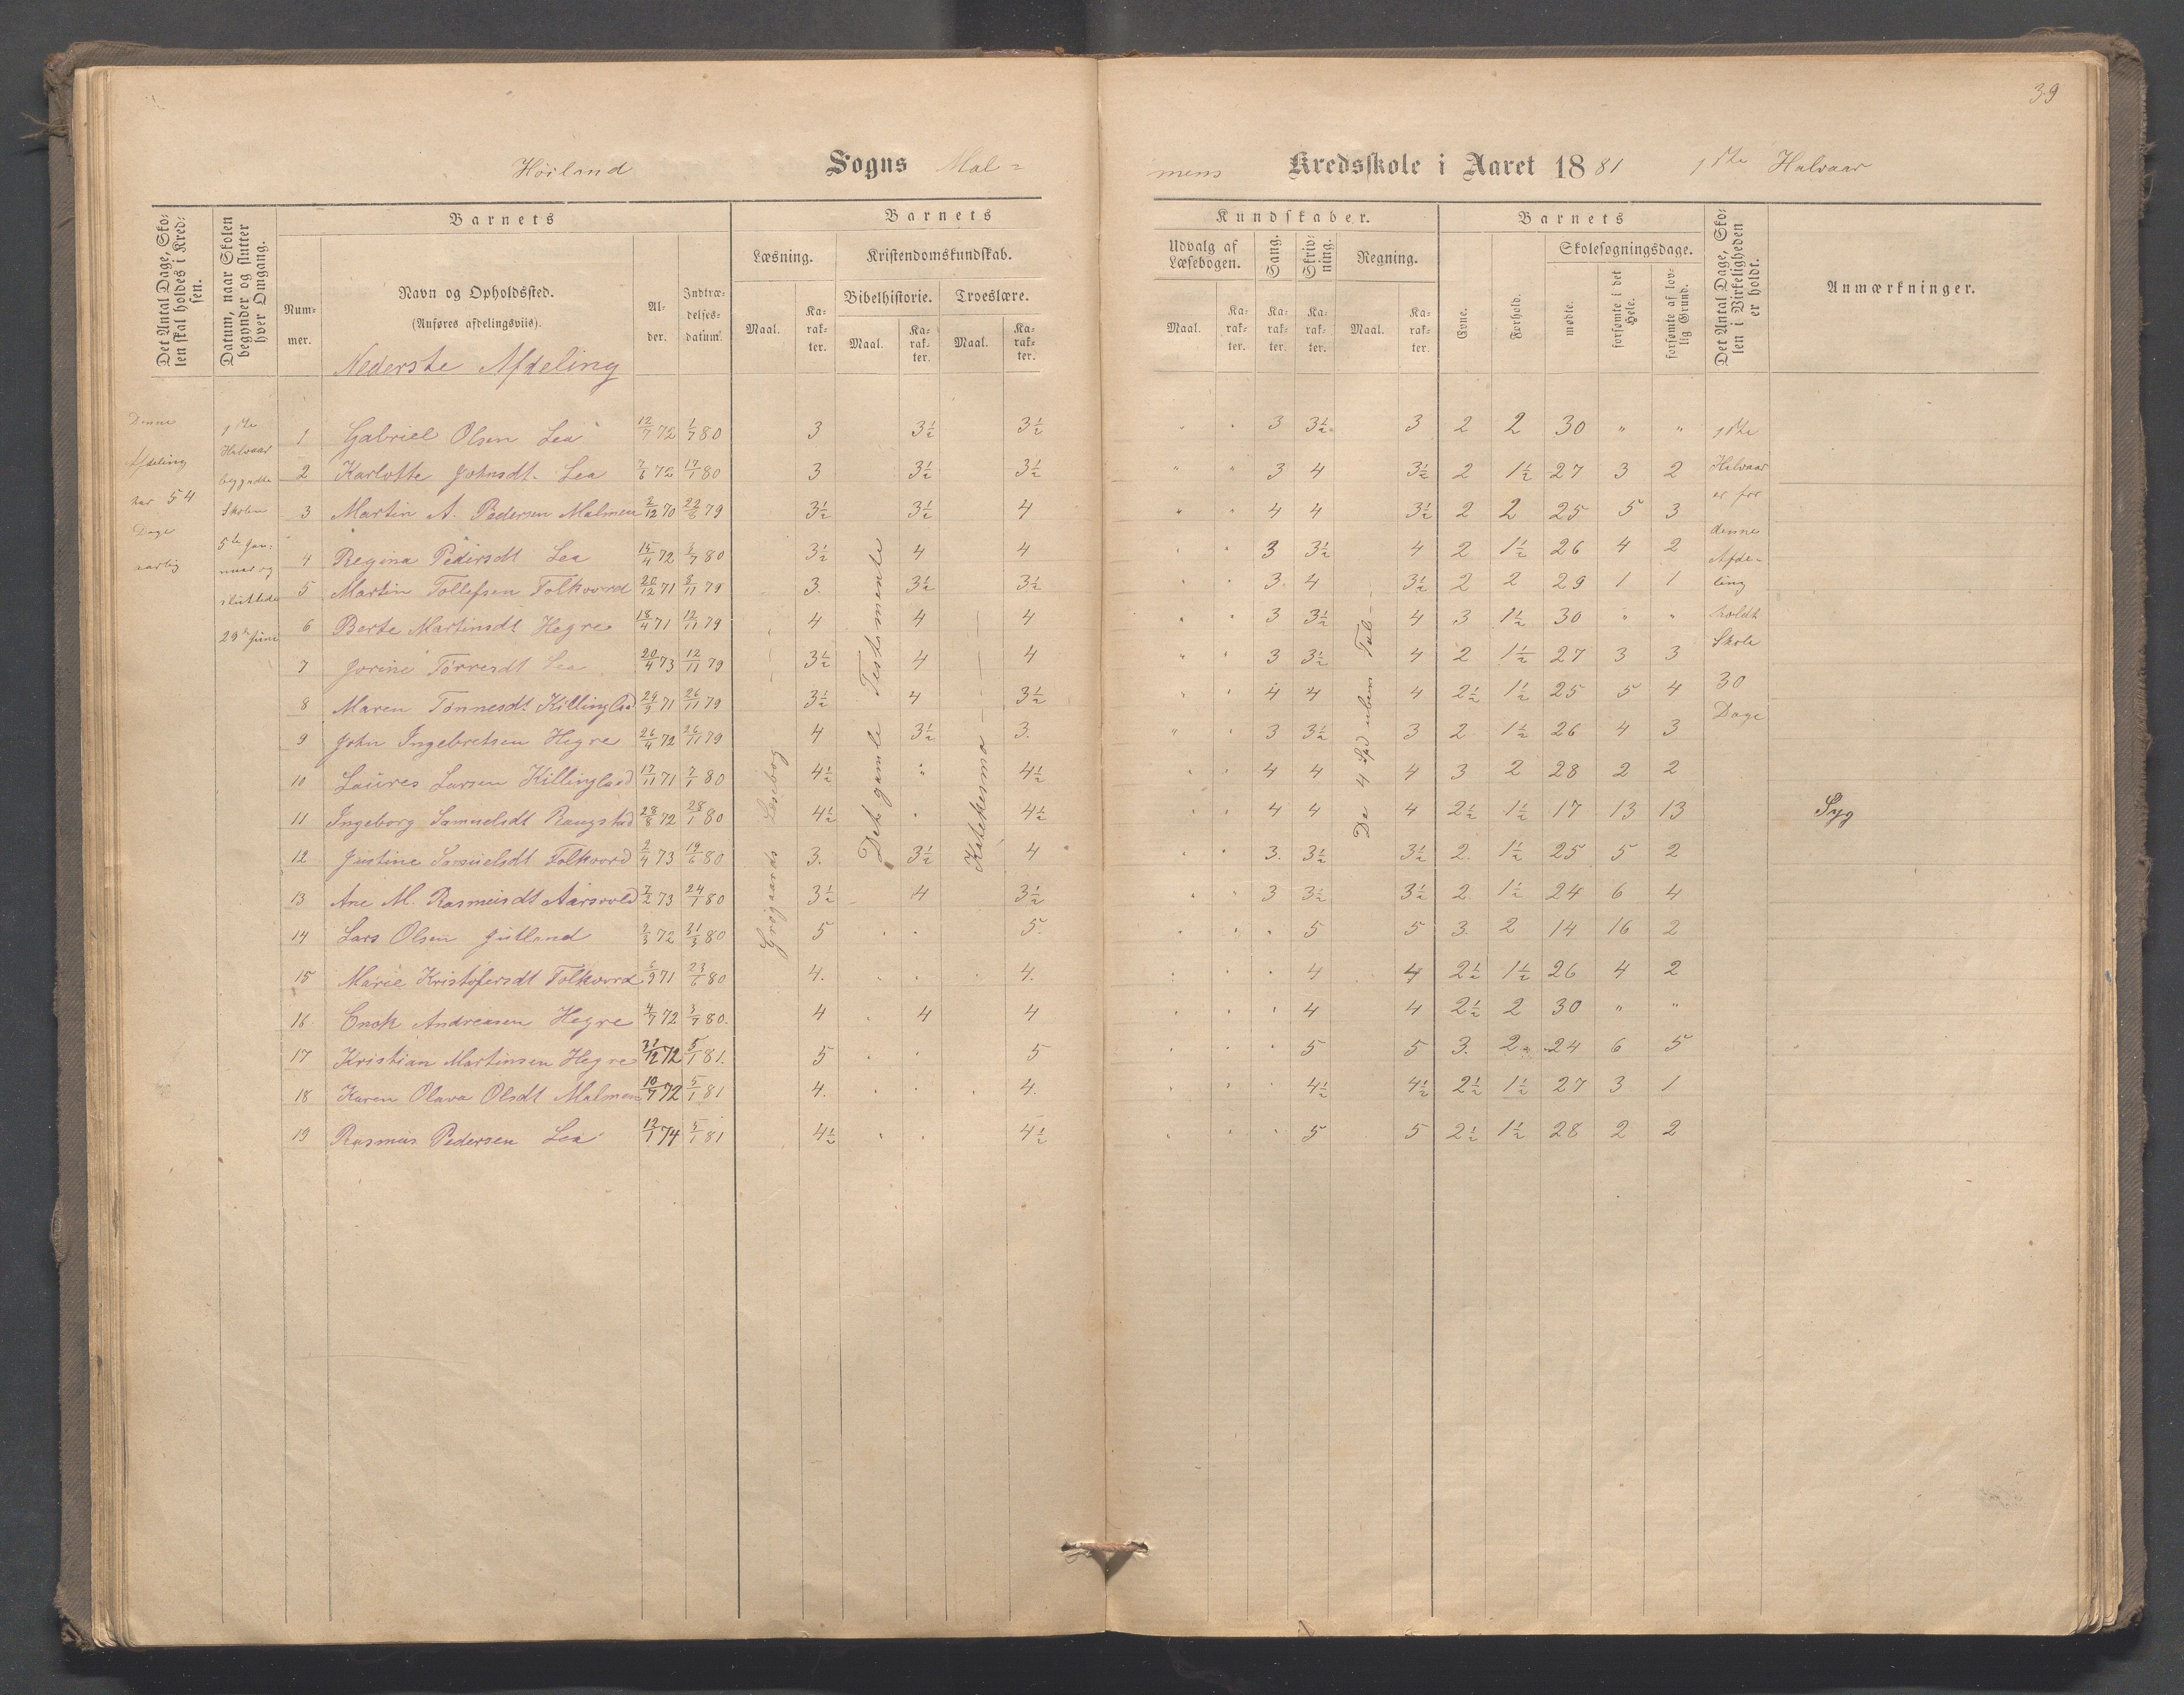 39
Høiland Sogns Mal=
mens Kredsskole i Aaret 1881 1ste Halvaar
Det Antal Dage, Sko-
len skal holdes i Kred-
sen.
Datum, naar Skolen
begynder og slutter
hver Omgang.
Barnets
Num-
mer.
Navn og Opholdssted.
(Anføres afdelingsviis).
Al-
der.
Indtræ-
delses-
datum.
Barnets
Læsning.
Maal.
Ka-
rak-
ter.
Kristendomskundskab.
Bibelhistorie.
Maal.
Ka-
rak-
ter.
Troeslære.
Maal.
Ka-
rak-
ter.
Kundskaber.
Udvalg af
Læsebogen.
Maal.
Ka-
rak-
ter.
Sang.
Ka-
rak-
ter.
Skriv-
ning.
Ka-
rak-
ter.
Regning.
Maal.
Ka-
rak-
ter.
Barnets
Evne.
Forhold.
Skolesøgningsdage.
mødte.
forsømte i det
Hele.
forsømte af lov-
lig Grund.
Det Antal Dage, Sko-
len i Virkeligheden
er holdt.
Anmærkninger.
Nederste Afdeling
Denne
Afdeling
har 54
Dage
aarlig
1ste
Halvaar
begyndte
Skolen
5te Jan-
nuar og
sluttede
29de Juni
Læsebog
Det gamle Testamente
De 4 Spd ubens Tal
1 Gabriel Olsen Lea 12/7 72 1/7 80 3 3½ 3½ " " 3 3½ 3 2 2 30 " "
2 Karlotte Johnsdt. Lea 7/6 72 17/1 80 3 3½ 3½ " " 3 4 3½ 2 1½ 27 3 2
3 Martin A. Pedersen Malmen 2/12 70 22/8 79 3½ 3½ 4 " " 4 4 3½ 2 2 25 5 3
4 Regina Pedersdt Lea 15/4 72 3/7 80 3½ 4 4 " " 3 3½ 4 2 1½ 26 4 2
5 Martin Tollefsen Folkvord 20/12 71 8/11 79 3 3½ 3½ " " 3 4 3½ 2 2 29 1 1
6 Berte Martinsdt Hegre 18/4 71 12/11 79 4 4 4 " " 3 3½ 4 3 1½ 30 " "
7 Jorine Tørresdt Lea 20/4 73 12/11 79 3½ 4 4 " " 3 3½ 4 2 1½ 27 3 3
8 Maren Tønnesdt. Killinglad 29/3 71 26/11 79 3½ 4 3½ " " 4 4 4 2½ 1½ 25 5 4
9 John Ingebretsen Hegre 26/4 72 26/11 79 4 3½ 3. " " 3 3½ 3 2 1½ 26 4 3
10 Laures Larsen Killinglad 17/11 71 7/1 80 4½ " 4½ " " 4 4 4 3 2 28 2 2
11 Ingeborg Samuelsdt Raugstad 28/8 72 28/1 80 4½ " 4½ " " 4 4 4 2½ 1½ 17 13 13 Syg
12 Justine Samuelsdt Folkvord 2/4 73 19/6 80 3. 3½ 4 " " 3. 3½ 3½ 2. 1½ 25 5 2
13 Ane M. Rasmusdt Aarsvold 7/2 73 24/1 80 3½ 4 3½ " " 3 3½ 3½ 2 1½ 24 6 4
14 Lars Olsen Jutland 9/3 72 31/3 80 5 " " 5. " " " 5 5 3. 2 14 16 2
15 Marie Kristofersdt Folkvord 6/9 71 23/6 80 4. " " 4. " " " 4 4 2½ 1½ 26 4 2
16 Enok Andreasen Hegre 4/7 72 3/7 80. 4 " 4 4 " " " 4 4 2½ 2 30 " "
17 Kristian Martinsen Hegre 31/12 72 5/1 81. 5 " " 5 " " " 5 5 3. 2 24 6 5
18 Karen Olava Olsdt Malmen 10/7 72 5/1 81 4. " " 4. " " " 4½ 4½ 2½ 1½ 27 3 1
19 Rasmus Pedersen Lea 12/1 74 5/1 81 4½ " " 4½ " " " 5 5 2½ 1½ 28 2 2
1ste
Halvaar
er for
denne
Afde-
ling
holdt
Skole
30
Dage